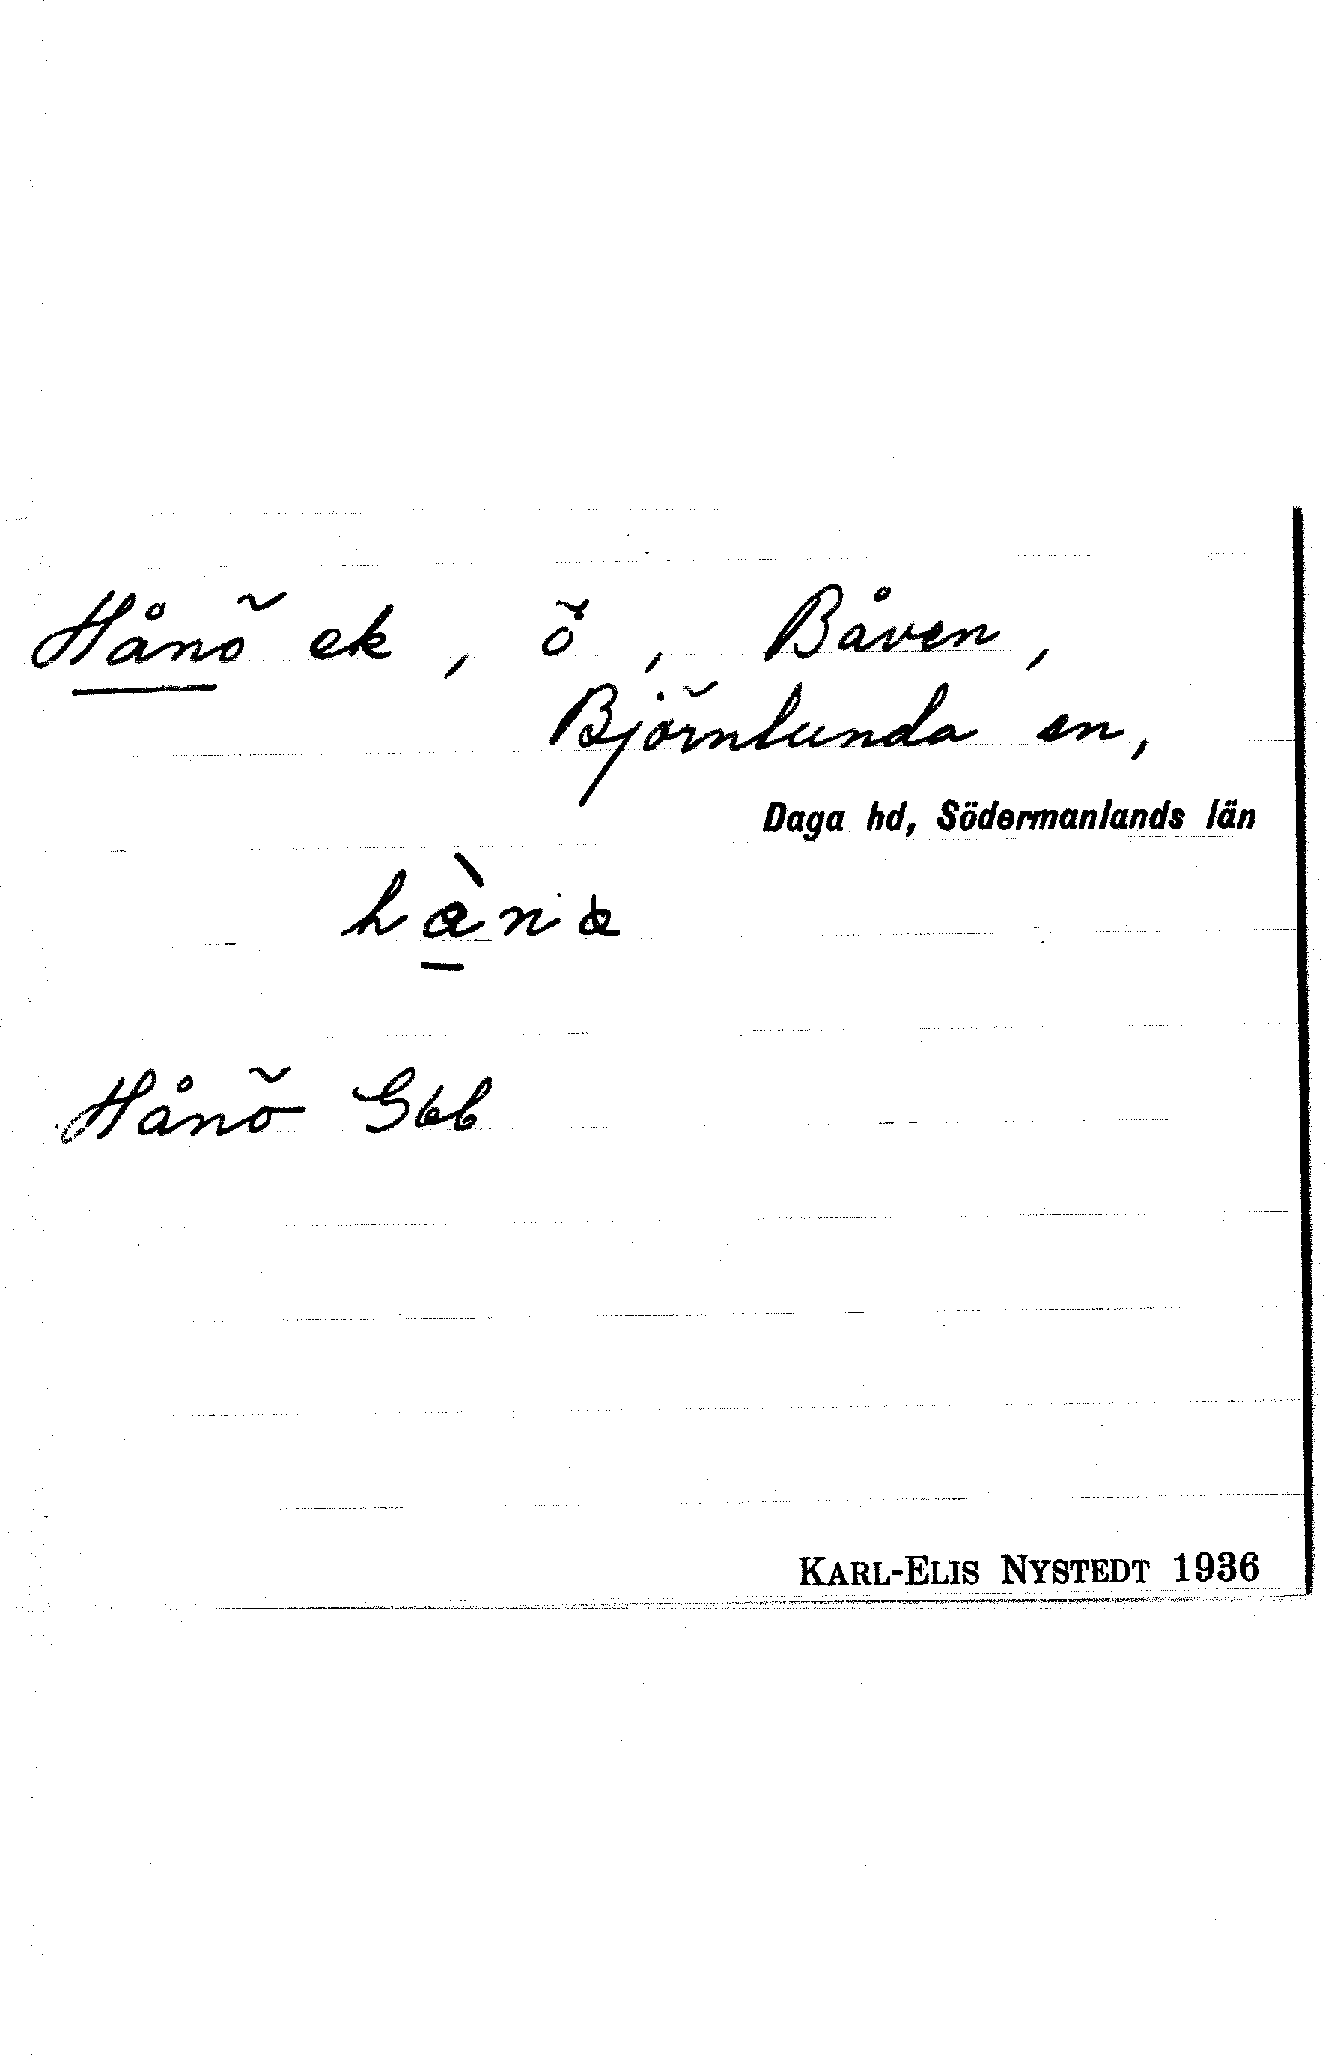 Hånö ek, ö, Båven,
Björnlunda sn,
Daga hd, Södermanlands län
Hånö Gbb
KARL-ELIS NYSTEDT 1936